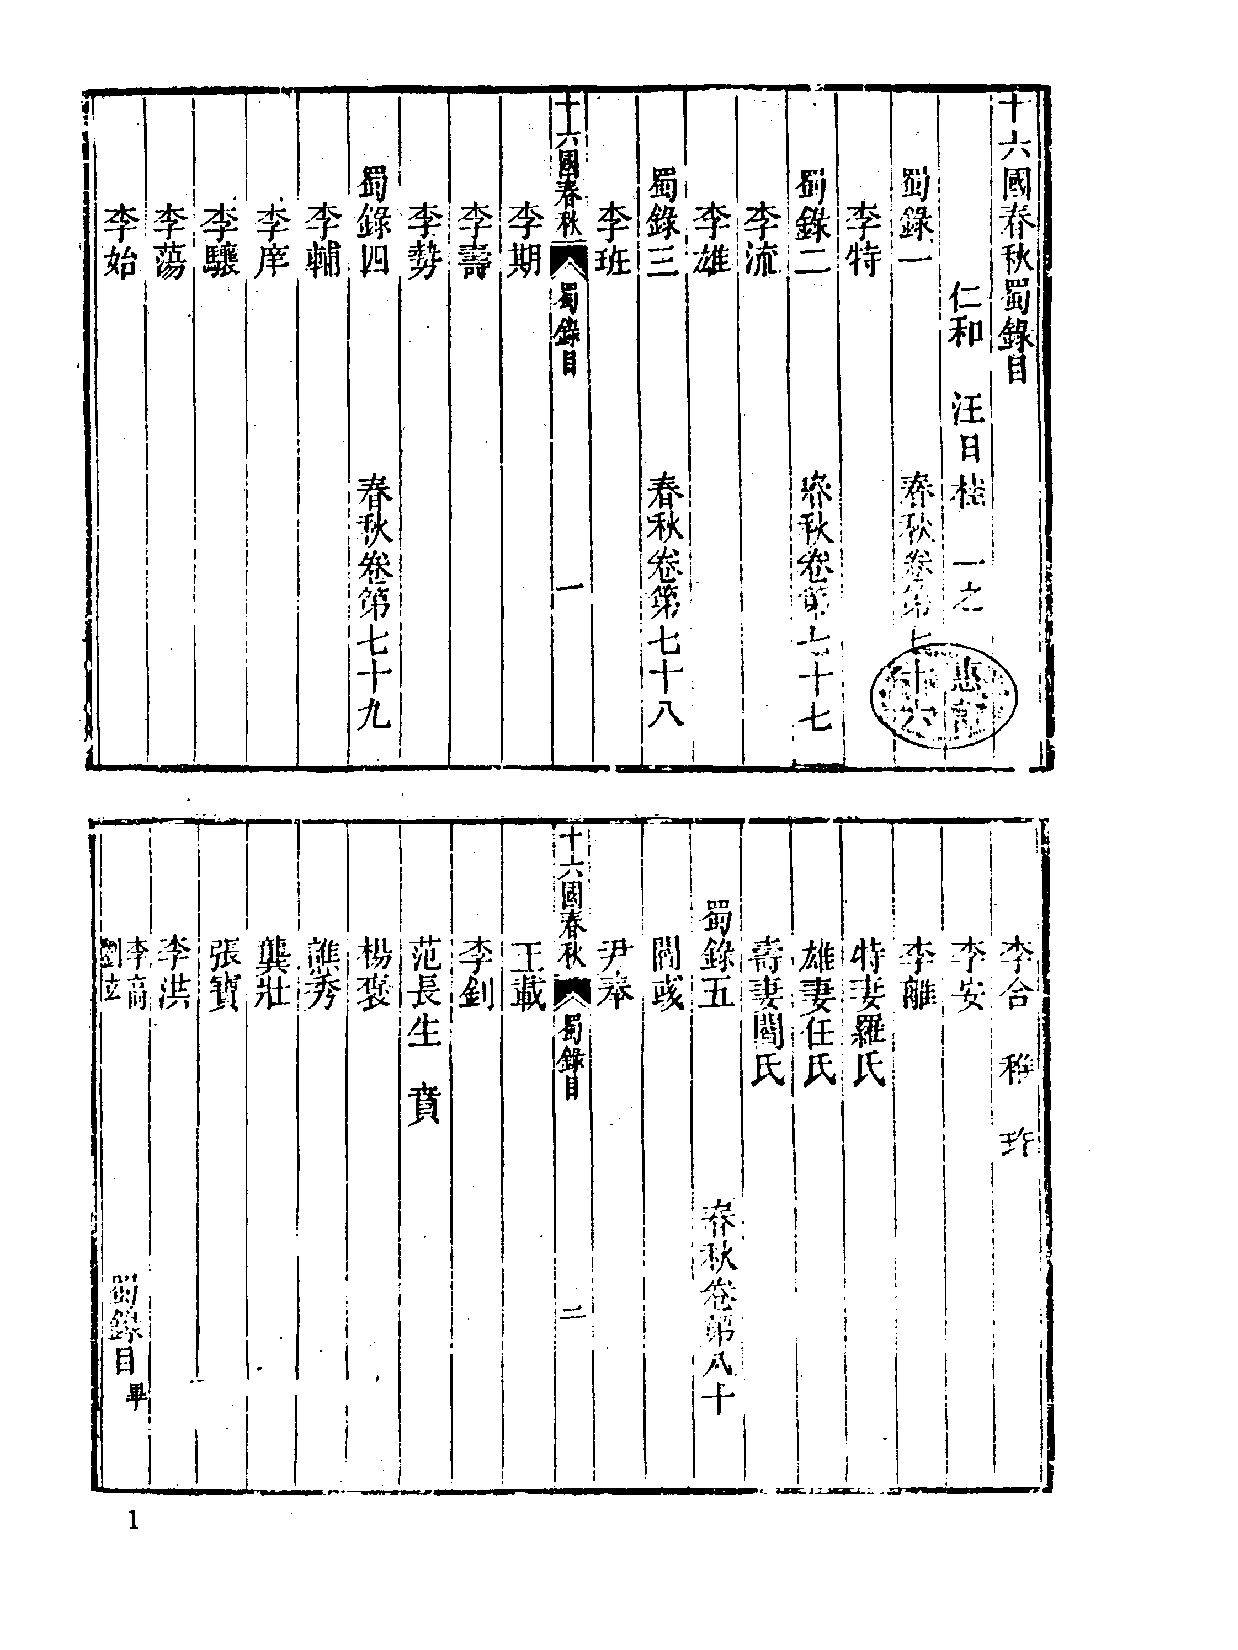 十六國春秋蜀錄目
仁和 汪日桂 一之
蜀錄一 春秋卷第七十六
李特
蜀錄二 春秋卷第七十七
李流
李雄
蜀錄三 春秋卷第七十八
李班
十六國春秋 蜀錄目 一
李期
李壽
李勢
蜀錄四 春秋卷第七十九
李輔
李庠
李驤
李蕩
李始
李含 稚 玝
李安
李離
特妻羅氏
雄妻任氏
壽妻閻氏
蜀錄五 春秋卷第八十
閻彧
尹奉
十六國春秋 蜀錄目 二
王載
李釗
范長生 賁
楊褒
譙秀
龔壯
張寶
李洪
李高
劉
蜀錄目畢
1